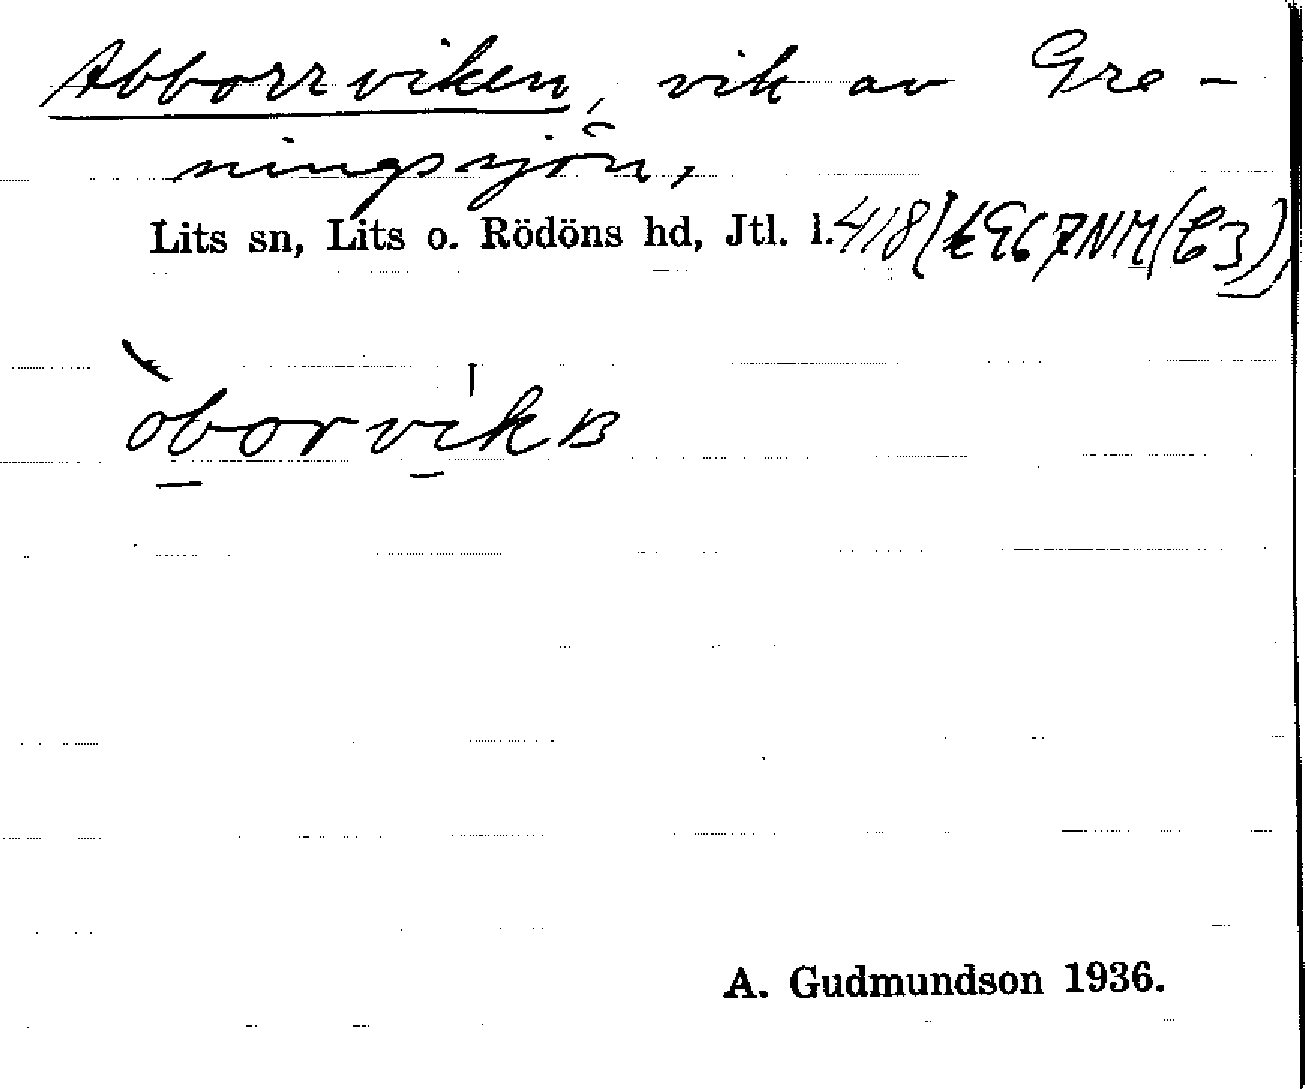 Abborrviken, vik av Gre-
ningssjön,
Lits sn, Lits o. Rödöns hd, Jtl. l.
oborvik
A. Gudmundson 1936.